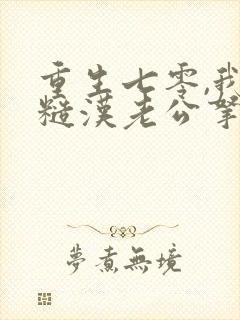 重生七零,我
糙漢老公
夢煮無境